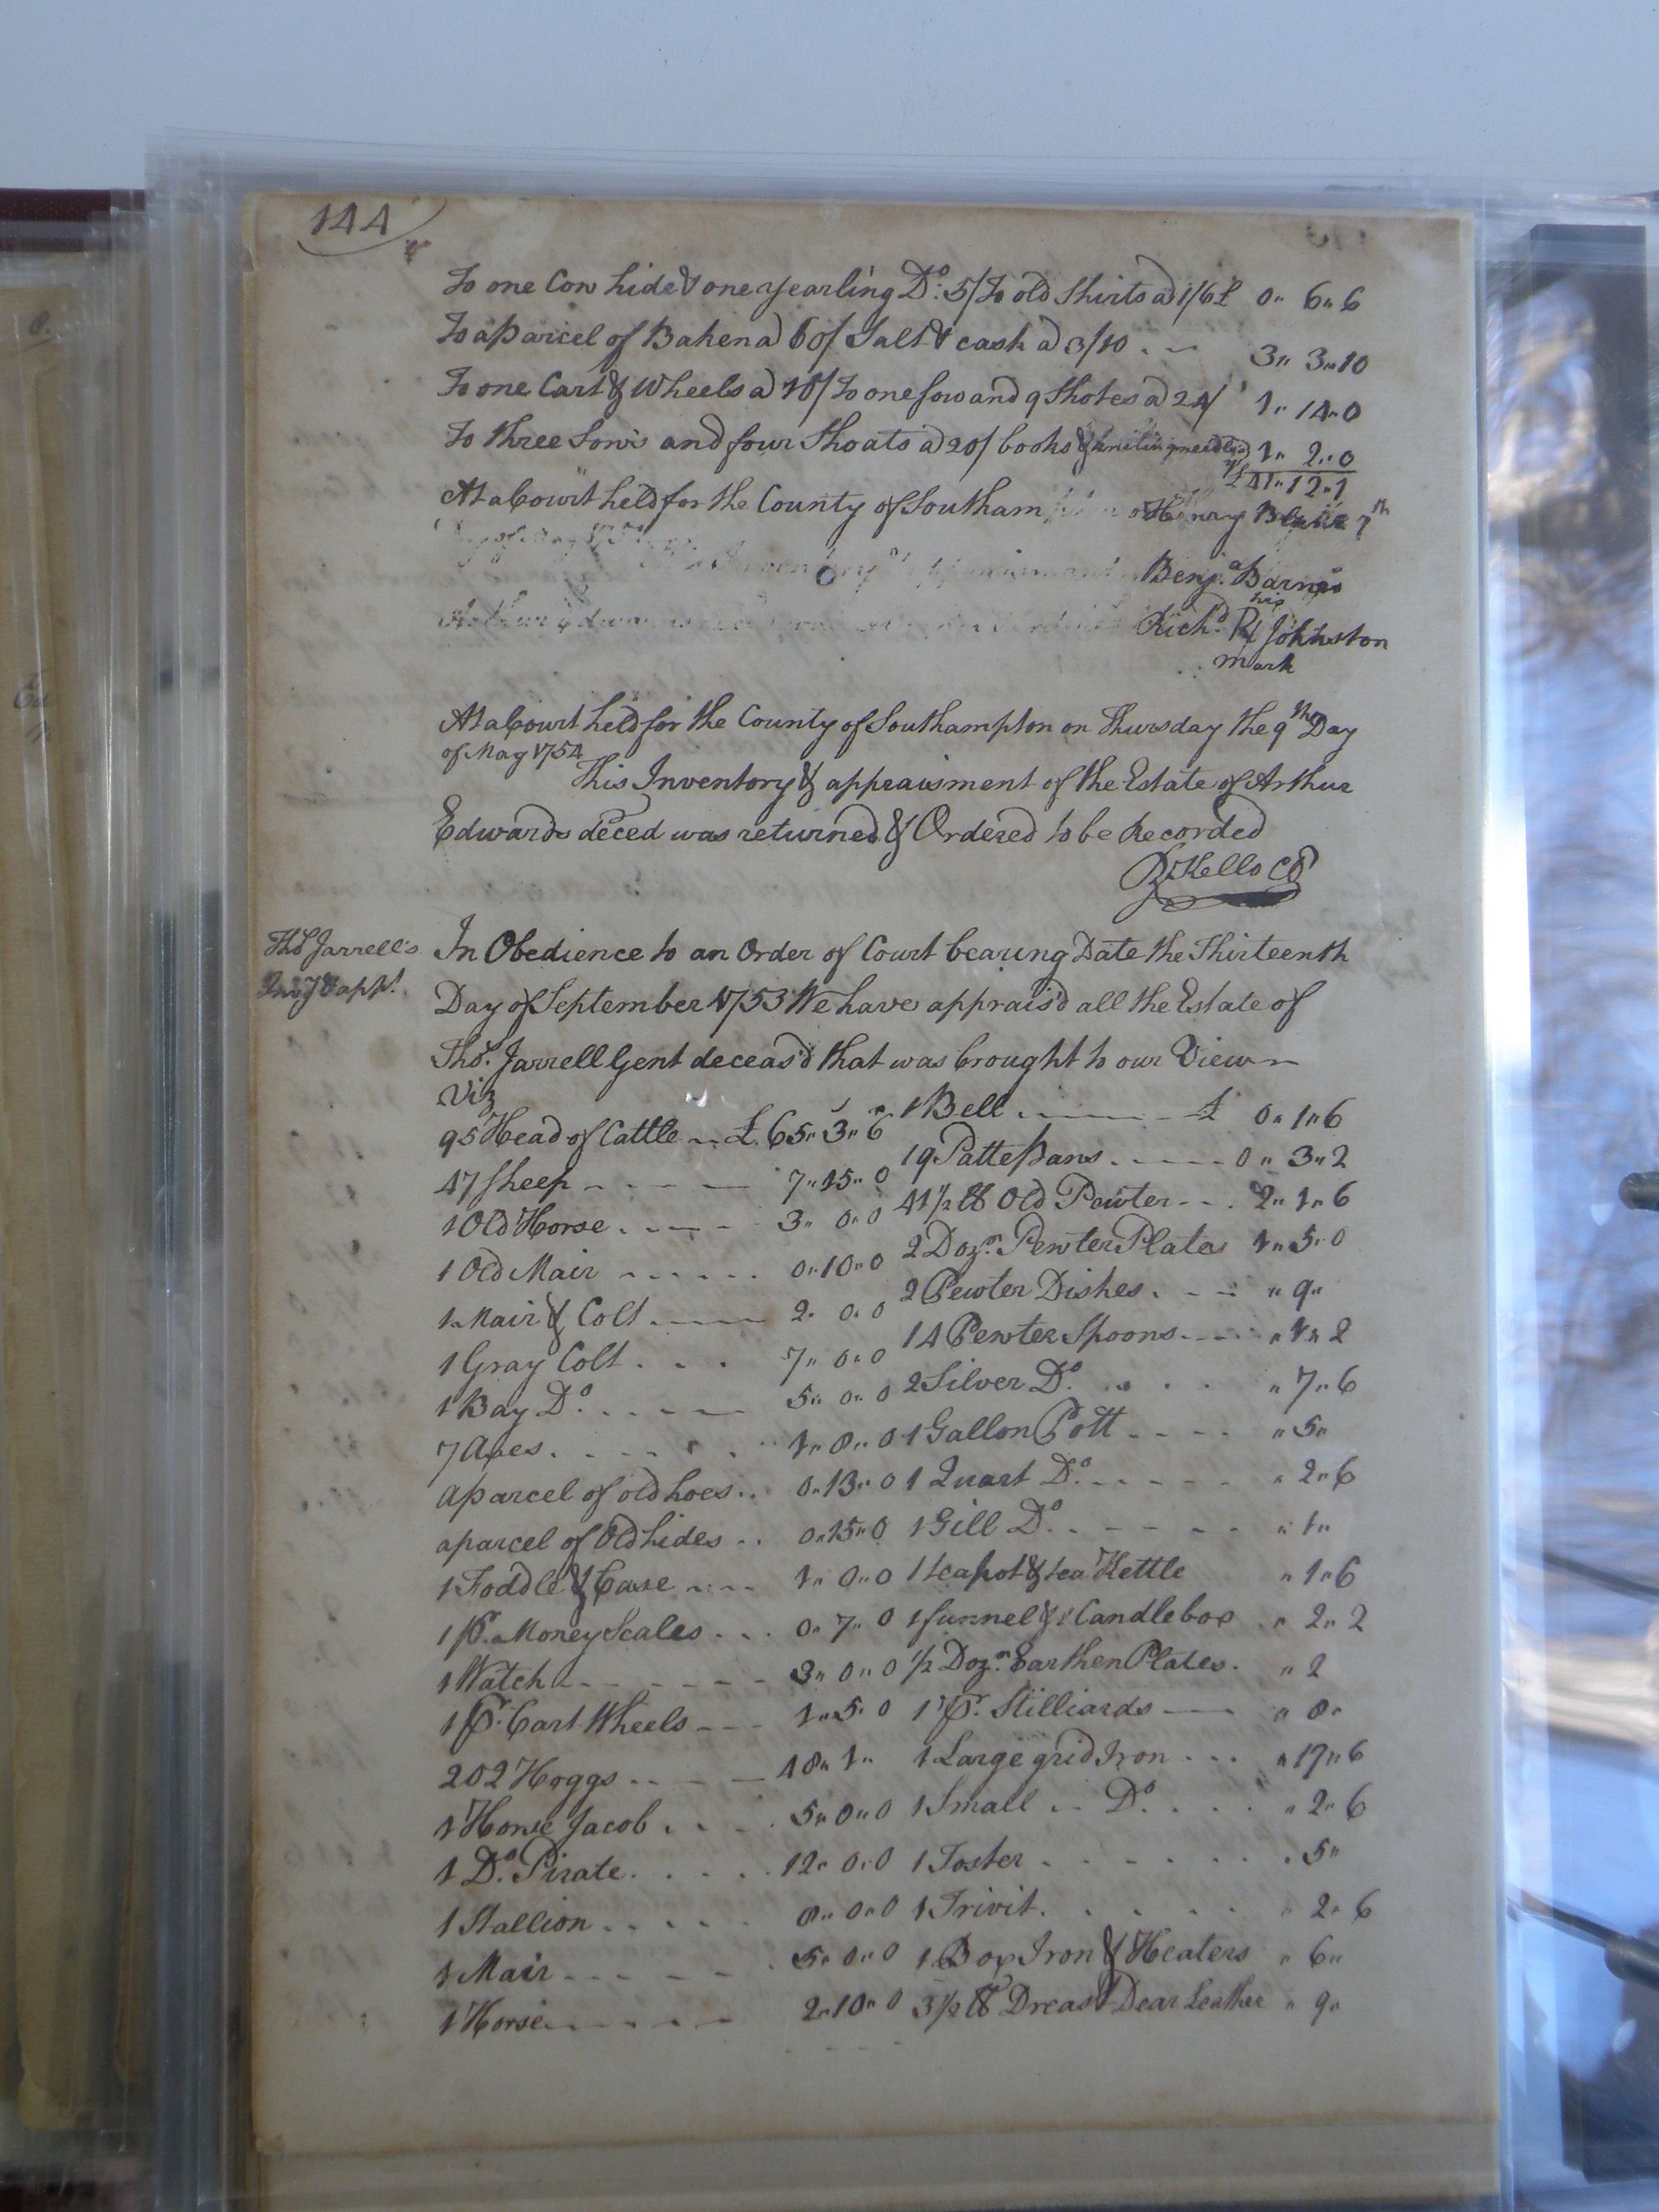 144
To one Cow hide & one yearling Do. 5/ To old Shirts a 1/6 £ 0 " 6 " 6
To a parcel of Baken a 60/ Salt & cash a 3/10 . . 3 " 3 " 10
To one Cart & Wheels a 10/ To one sow and 9 Shotes a 24/ 1 " 14 " 0
To three Sows and four Shoats a 20/ books & kniting needles 1 " 2 " 0
£ 41 " 12 " 1
At a Court held for the County of Southam Henry
Benja. Barnes
his
Richd. R Johnston
mark
At a Court held for the County of Southampton on Thursday the 9th Day
of May 1754
This Inventory & appraisment of the Estate of Arthur
Edwards deced was returned & Ordered to be Recorded
R Kello CC
Thos. Jarrell's
Invy & appt.
In Obedience to an Order of Court bearing Date the Thirteenth
Day of September 1753 We have apprais'd all the Estate of
Thos. Jarrell Gent deceas'd that was brought to our View
Viz
95 Head of Cattle £ 65 " 3 " 6
47 Sheep 7 " 15 " 0
1 Old Horse 3 " 0 " 0
1 Old Mair 0 " 10 " 0
1 Mair & Colt 2 " 0 " 0
1 Gray Colt 7 " 0 " 0
1 Bay Do. 5 " 0 " 0
7 Axes 1 " 8 " 0
a parcel of old hoes 0 " 13 " 0
a parcel of Old hides 0 " 15 " 0
1 Foddle & Case 1 " 0 " 0
1 pr. Money Scales 0 " 7 " 0
1 Watch 3 " 0 " 0
1 pr. Cart Wheels 1 " 5 " 0
202 Hoggs 48 " 1 "
1 Horse Jacob 5 " 0 " 0
1 Do. Pirate 12 " 0 " 0
1 Stallion 8 " 0 " 0
1 Mair 5 " 0 " 0
1 Horse 2 " 10 " 0
1 Bell £ 0 " 1 " 6
19 Pattepans 0 " 3 " 2
41 1/2 lb Old Pewter 2 " 1 " 6
2 Dozn. Pewter Plates 1 " 5 " 0
2 Pewter Dishes " 9 "
14 Pewter Spoons " 1 " 2
2 Silver Do. " 7 " 6
1 Gallon Pott " 5 "
1 Quart Do. " 2 " 6
1 Gill Do. " 1 "
1 teapot & tea Kettle " 1 " 6
1 funnel & 1 Candlebox " 2 " 2
1/2 Dozn. Earthen Plates " 2
1 pr. Stilliards " 8 "
1 Large grid Iron " 17 " 6
1 Small Do. " 2 " 6
1 Toster " 5 "
1 Trivit " 2 " 6
1 Box Iron & Heaters " 6 "
3 1/2 lb Dreast Dear Leather " 9 "